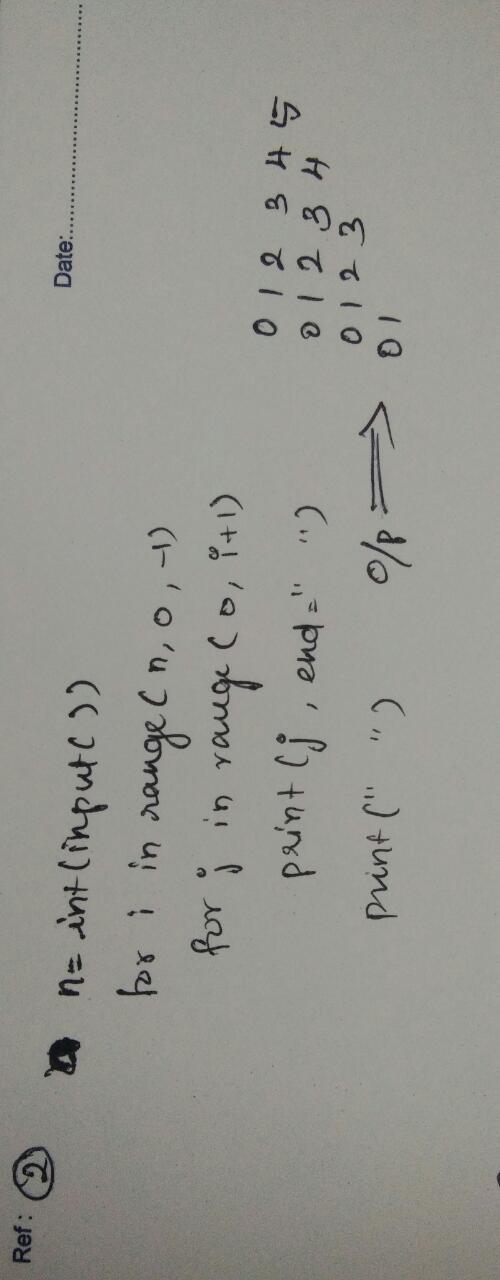 Ref: 2
Date:
n = int(input())
for i in range(n, 0, -1)
for j in range(0, i+1)
print(j, end=" ")
print(" ")
O/p ⟹
0 1 2 3 4 5
0 1 2 3 4
0 1 2 3
0 1